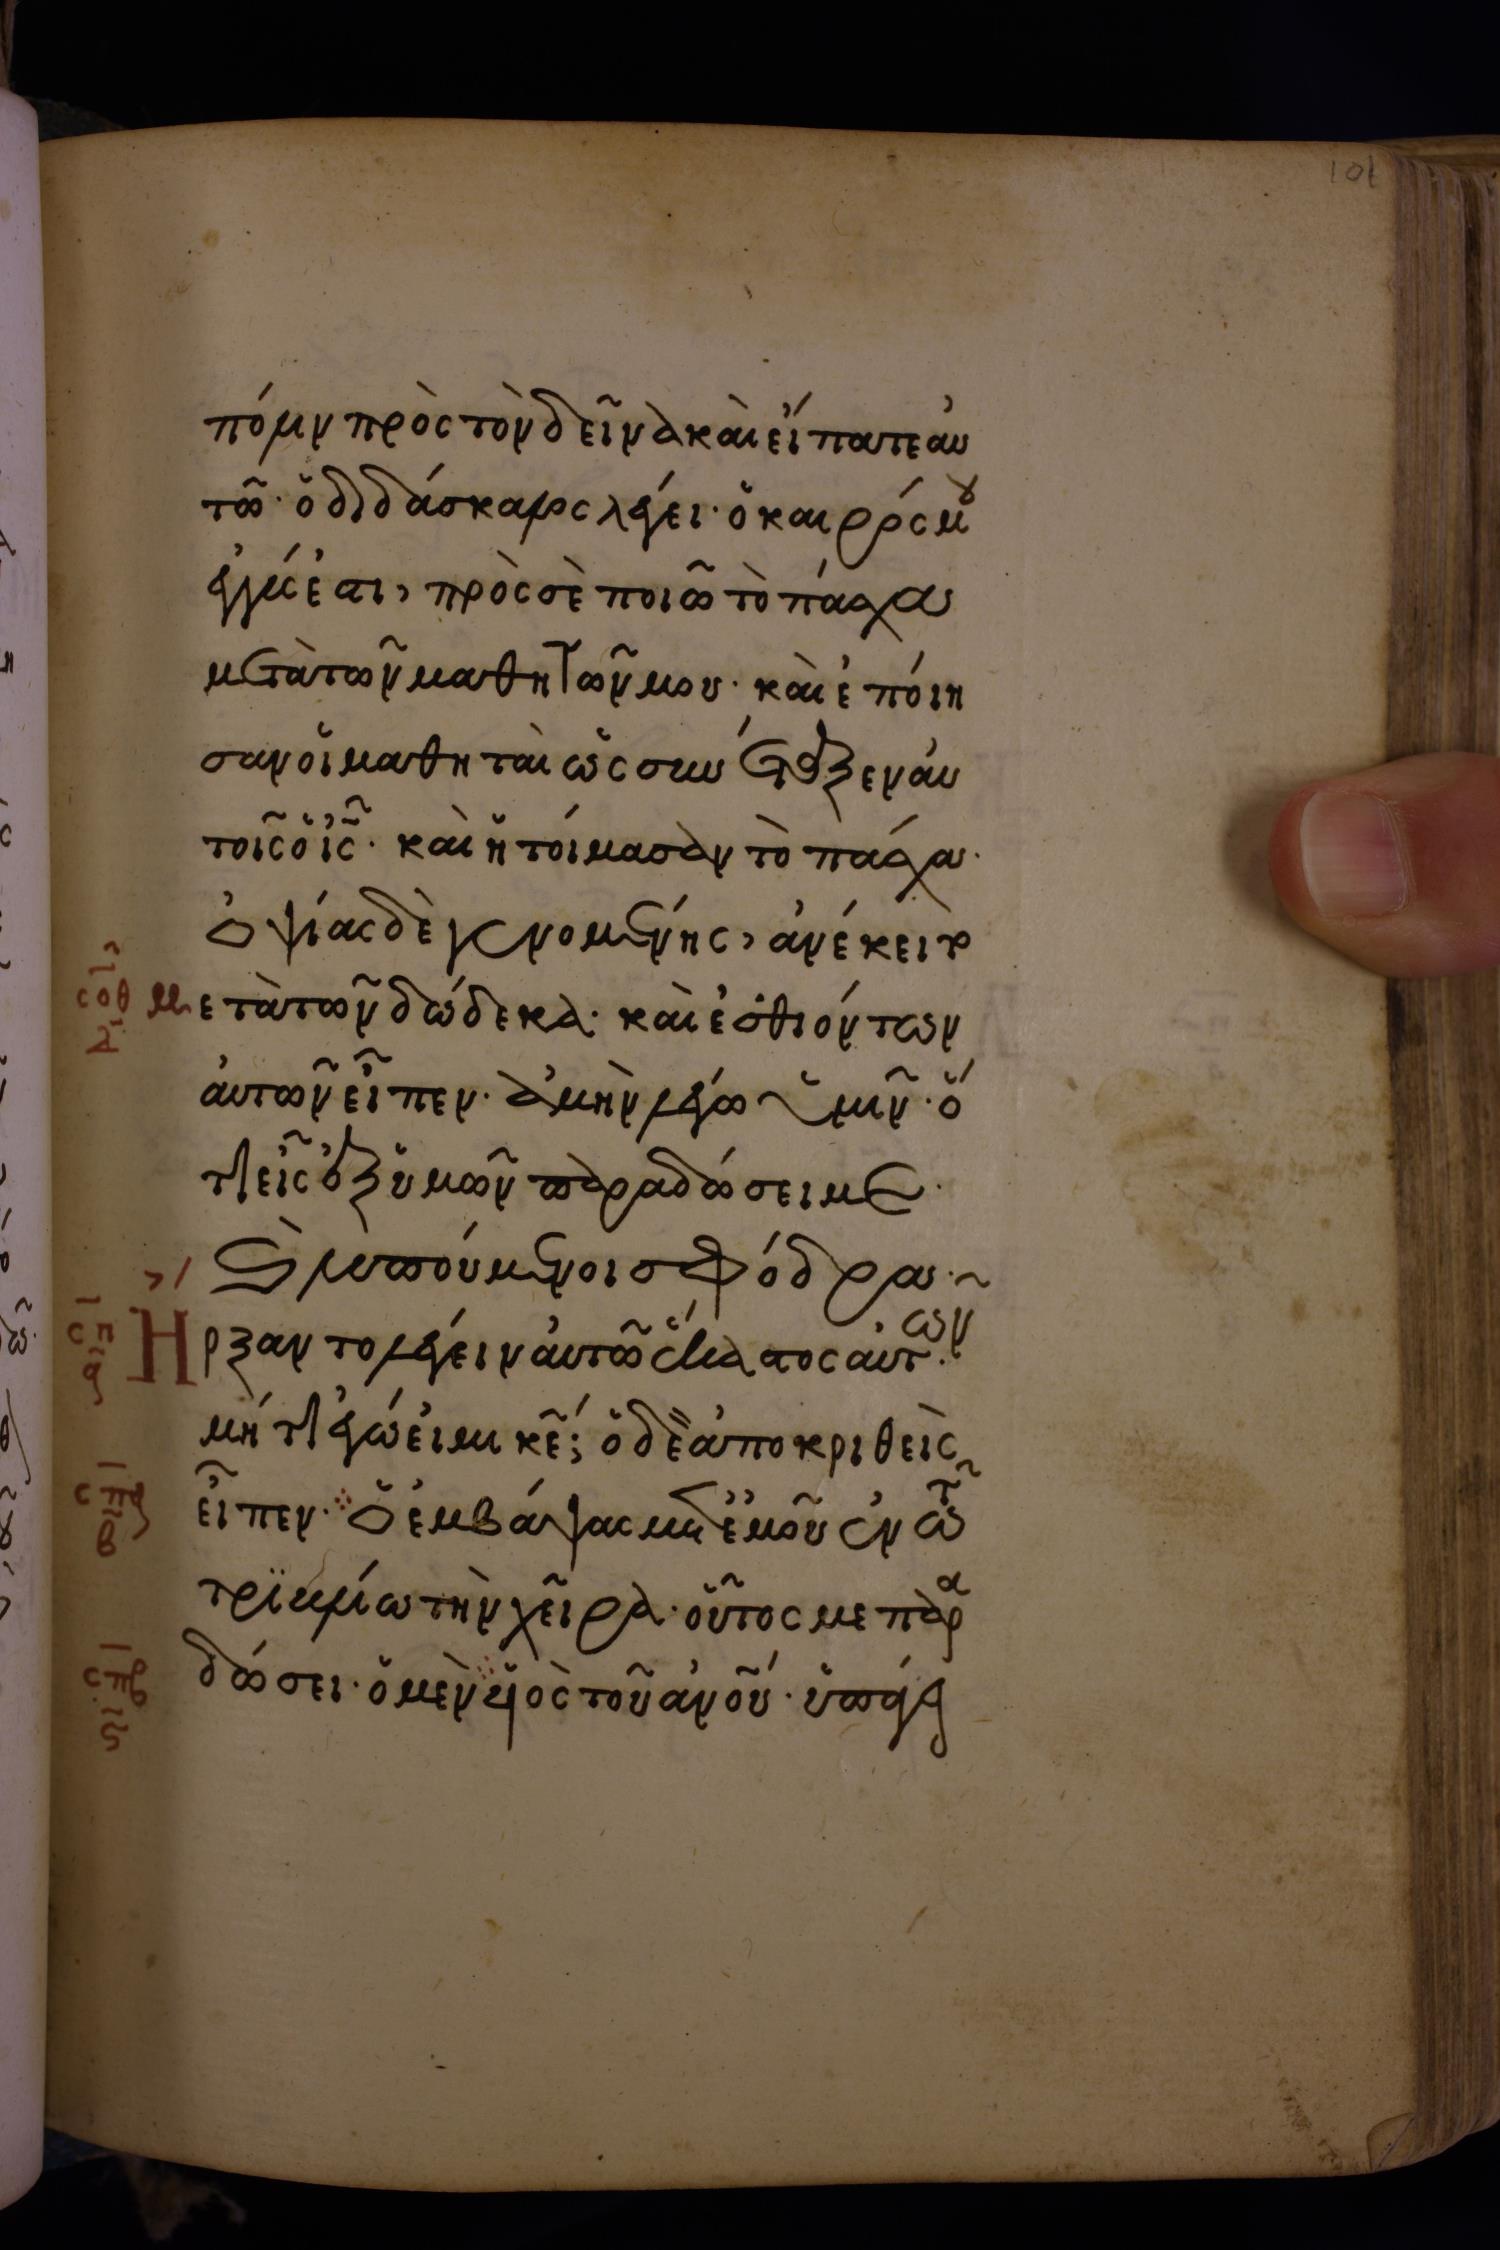 101
πόλιν πρὸς τὸν δεῖνα καὶ εἴπατε αὐ
τῶ· ὁ διδάσκαλος λέγει· ὁ καιρός μου
ἐγγύς ἐστι, πρὸς σὲ ποιῶ τὸ πάσχα
μετὰ τῶν μαθητῶν μου· καὶ ἐποίη
σαν οἱ μαθηταὶ ὡς συνέταξεν αὐ
τοῖς ὁ ἰς̅· καὶ ἡτοίμασαν τὸ πάσχα·
ὀψίας δὲ γενομένης, ἀνέκειτο
σοθ μετὰ τῶν δώδεκα· καὶ ἐσθιόντων
δ
αὐτῶν εἶπεν· ἀμὴν λέγω ὑμῖν· ὅ
τι εἷς ἐξ ὑμῶν παραδώσει με·
καὶ λυπούμενοι σφόδρα·
σπ Ἤρξαντο λέγειν αὐτῶ ἕκαστος αὐτῶν·
α
μή τι ἐγώ εἰμι κε̅; ὁ δὲ ἀποκριθεὶς
σπα εἶπεν· ὁ ἐμβάψας μετ ἐμοῦ ἐν τῶ
β
τρϊβλίω τὴν χεῖρα· οὗτός με παρα
σπβ δώσει· ὁ μὲν υἱὸς τοῦ ἀν̅ου· ὑπάγει
ϛ